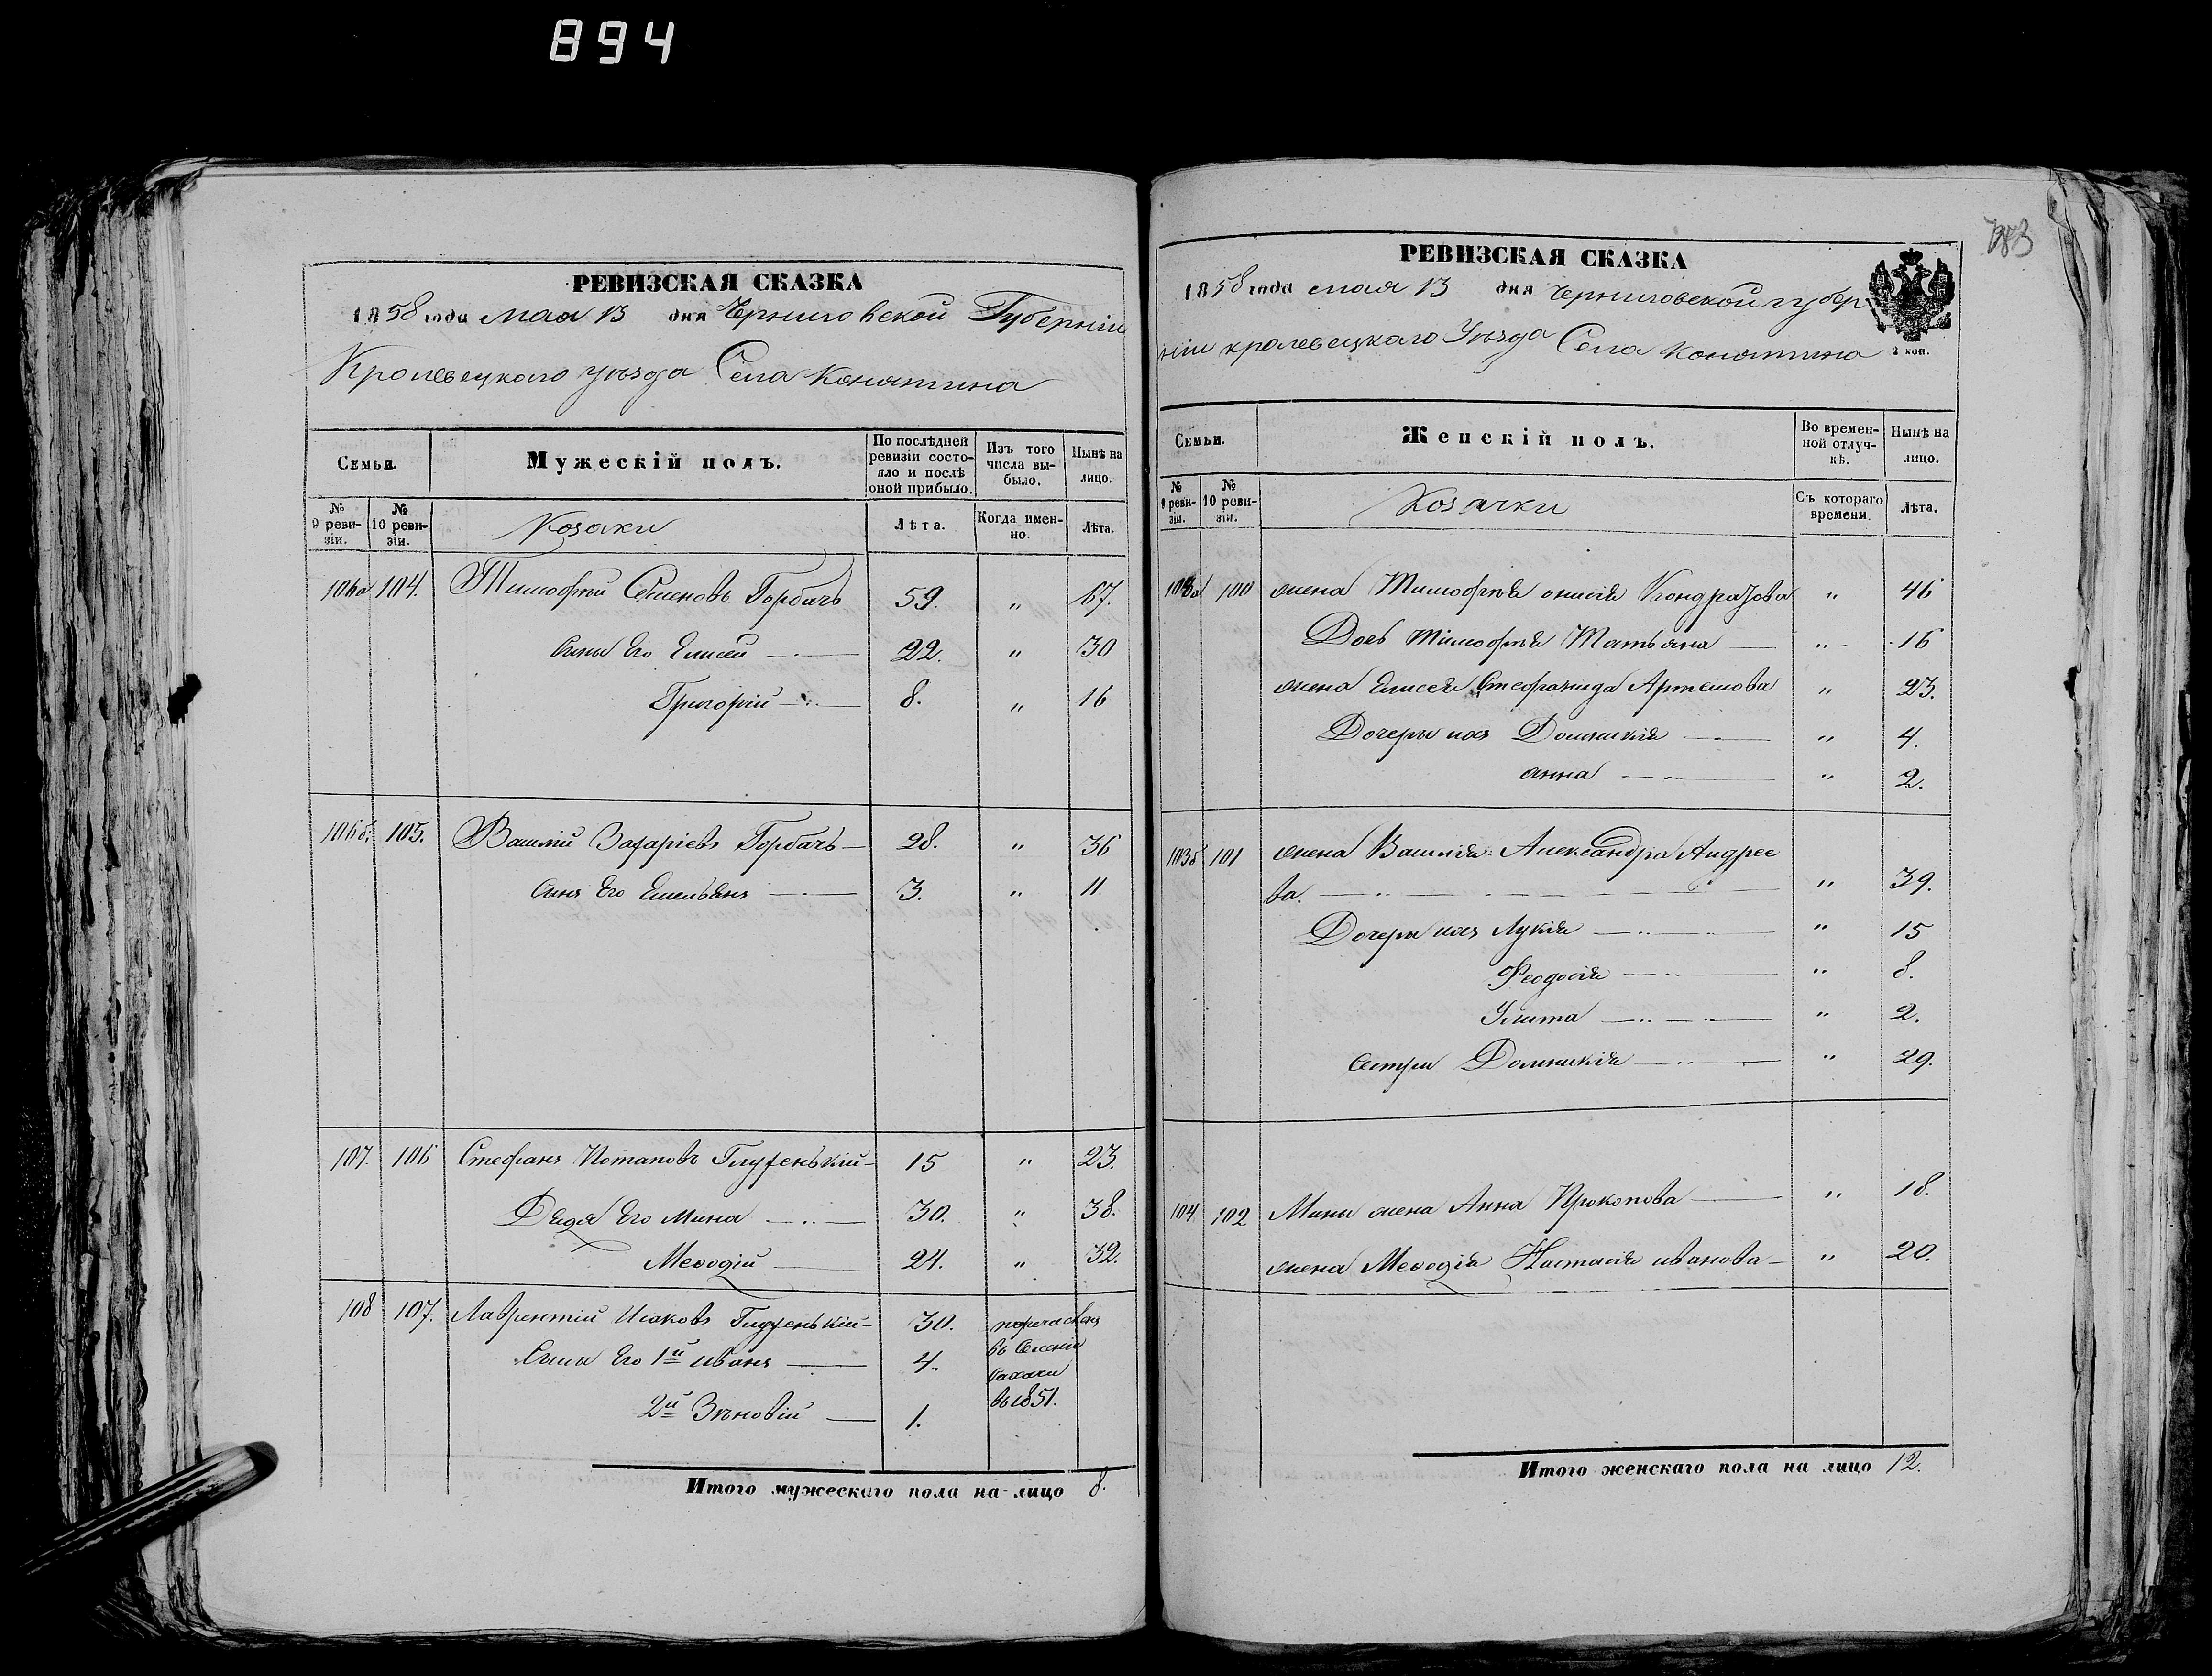 894
РЕВИЗСКАЯ СКАЗКА
1858 года мая 13 дня Черниговской Губерніи
Кролевецкаго уѣзда Села Конятина
Семьи.
Мужескій полъ.
По послѣдней ревизіи состояло и послѣ оной прибыло.
Изъ того числа выбыло.
Нынѣ на лицо.
№ 9 ревизіи.
№ 10 ревизіи.
Козаки
Лѣта.
Когда именно.
Лѣта.
106а 104. Тимофѣй Семеновъ Горбачъ 59. " 67.
Сины Его Елисей 22. " 30
Григорій 8. " 16
106б. 105. Василій Захаріевъ Горбачъ 28. " 36
Синъ Его Емельянъ 3. " 11
107. 106 Стефанъ Потаповъ Глухенькій 15 " 23.
Дядя Его Мина 30. " 38.
Меѳодій 24. " 32.
108 107. Лаврентій Исаковъ Глухенькій 30.
Сины Его 1й иванъ 4.
2й Зѣновій 1.
въ 1851.
Итого мужескаго пола на лицо 8.
РЕВИЗСКАЯ СКАЗКА
1858 года мая 13 дня Черниговской губер
ніи кролевецкаго Уѣзда Села Конятина
2 коп.
Семьи.
Женскій полъ.
Во временной отлучкѣ.
Нынѣ на лицо.
№ 9 ревизіи.
№ 10 ревизіи.
Козачки
Съ котораго времени.
Лѣта.
103а 100 жена Тимофѣя Кондратова " 46
Дочь Тимофѣя Татьяна " 16
жена Елисея Стефанида Артемова " 23.
Дочери ихъ Домникія " 4.
анна " 2.
103б 101 жена Василія Александра Андрее
ва. " 39.
Дочери ихъ Лукія " 15
Феодосія " 8.
Улита " 2.
Сестри Домникія " 29.
104 102 Мины жена Анна Прокопова " 18.
жена Меѳодія Настасія иванова " 20.
Итого женскаго пола на лицо 12.